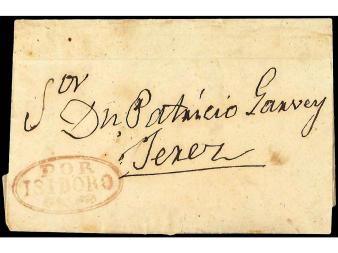 Sor
Dn. Patricio Garvey
Jerez
POR
ISIDORO